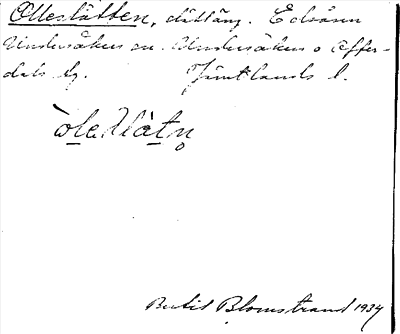 Olleslåtten, slåttäng. Edsåsen
Undersåkers sn. Undersåkers o Offer-
dals tg. Jämtlands l.
Bertil Blomstrand 1934